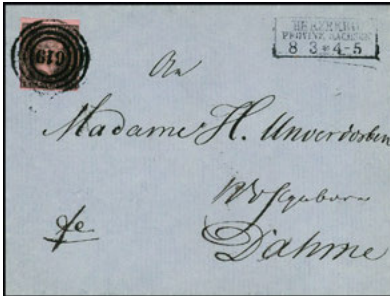 619
HERZBERG
PROVINZ SACHSEN
8 3 * 4-5
An
Madame H. Unverdorben
Wohlgeboren
Dahme